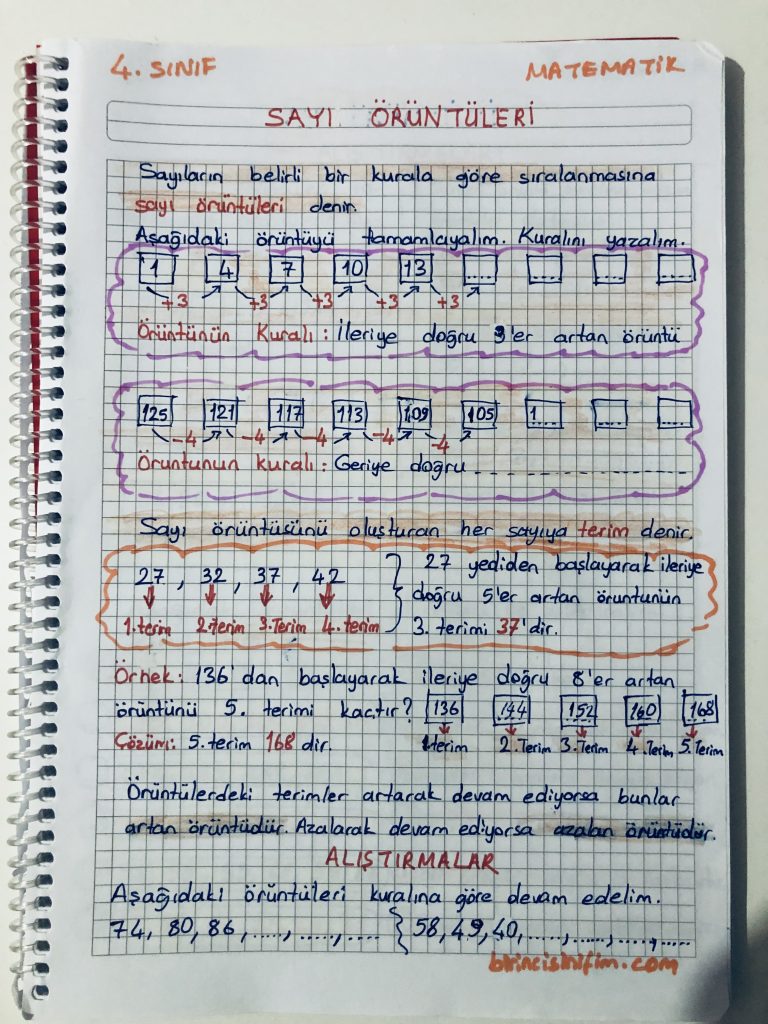 4. SINIF MATEMATİK
SAYI ÖRÜNTÜLERİ
Sayıların belirli bir kurala göre sıralanmasına
sayı örüntüleri denir.
Aşağıdaki örüntüyü tamamlayalım. Kuralını yazalım.
1 4 7 10 13 .... .... .... ....
+3 +3 +3 +3 +3
Örüntünün Kuralı: İleriye doğru 3'er artan örüntü
125 121 117 113 109 105 1.... .... ....
-4 -4 -4 -4 -4
Örüntünün kuralı: Geriye doğru _ _ _ _ _ _ _ _ _ _ _ _
Sayı örüntüsünü oluşturan her sayıya terim denir.
27, 32, 37, 42
1.terim 2.terim 3.Terim 4.terim
27 yediden başlayarak ileriye
doğru 5'er artan örüntünün
3. terimi 37'dir.
Örnek: 136'dan başlayarak ileriye doğru 8'er artan
örüntünü 5. terimi kaçtır? 136 144 152 160 168
Çözüm: 5.terim 168 dir. 1.terim 2.Terim 3.Terim 4.Terim 5.Terim
Örüntülerdeki terimler artarak devam ediyorsa bunlar
artan örüntüdür. Azalarak devam ediyorsa azalan örüntüdür.
ALIŞTIRMALAR
Aşağıdaki örüntüleri kuralına göre devam edelim.
74, 80, 86, ....., ....., ..... 58, 49, 40, ....., ....., ....., .....
birincisinifim.com